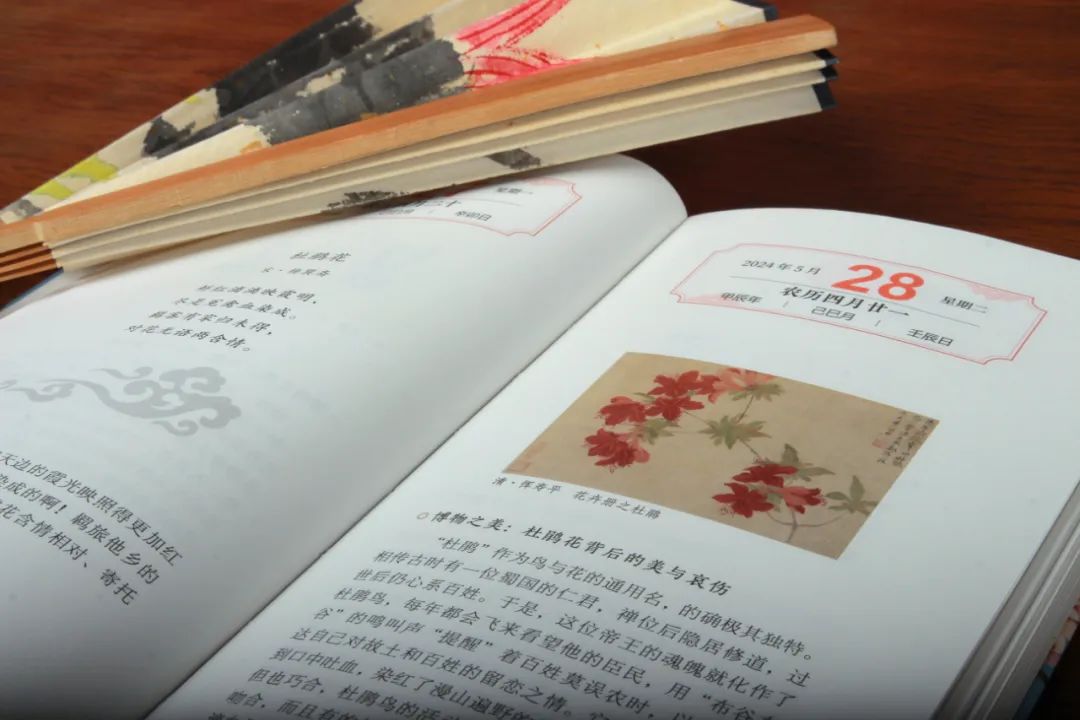 星期一
辛卯日
杜鹃花
鲜红滴滴映霞明，
尽是冤禽血染成。
羁客有家归未得，
对花无语两含情。
天边的霞光映照得更加红
染成的啊！羁旅他乡的
花含情相对、寄托
2024年5月 28 星期二
农历四月廿一
甲辰年 | 己巳月 | 壬辰日
清·恽寿平 花卉册之杜鹃
博物之美：杜鹃花背后的美与哀伤
“杜鹃”作为鸟与花的通用名，的确极其独特。
相传古时有一位蜀国的仁君，禅位后隐居修道，过
世后仍心系百姓。于是，这位帝王的魂魄就化作了
杜鹃鸟，每年都会飞来看望他的臣民，用“布谷布
谷”的鸣叫声“提醒”着百姓莫误农时，以
达自己对故土和百姓的留恋之情。
到口中吐血，染红了漫山遍野的
但也巧合，杜鹃鸟的活动
吻合，而且有的